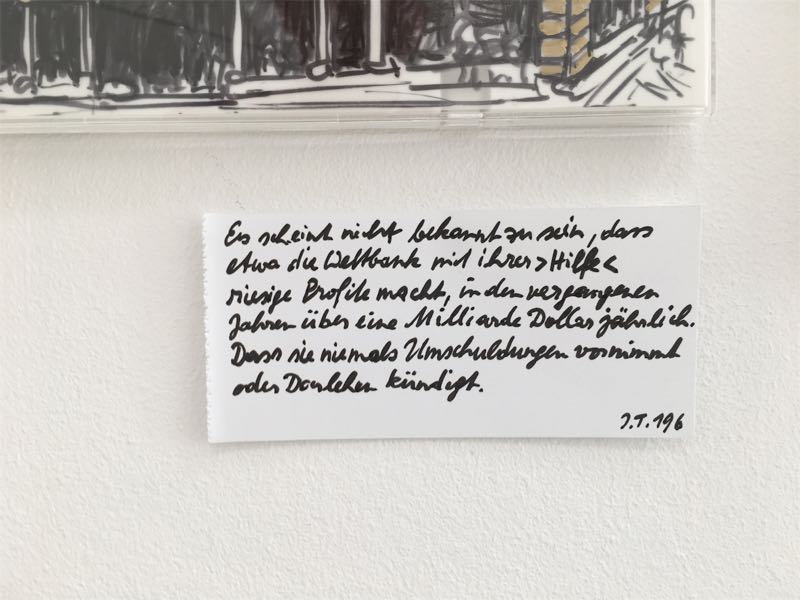 Es scheint nicht bekannt zu sein, dass
etwa die Weltbank mit ihrer >Hilfe<
riesige Profite macht, in den vergangenen
Jahren über eine Milliarde Dollar jährlich.
Dass sie niemals Umschuldungen vornimmt
oder Darlehen kündigt.
J.T. 196